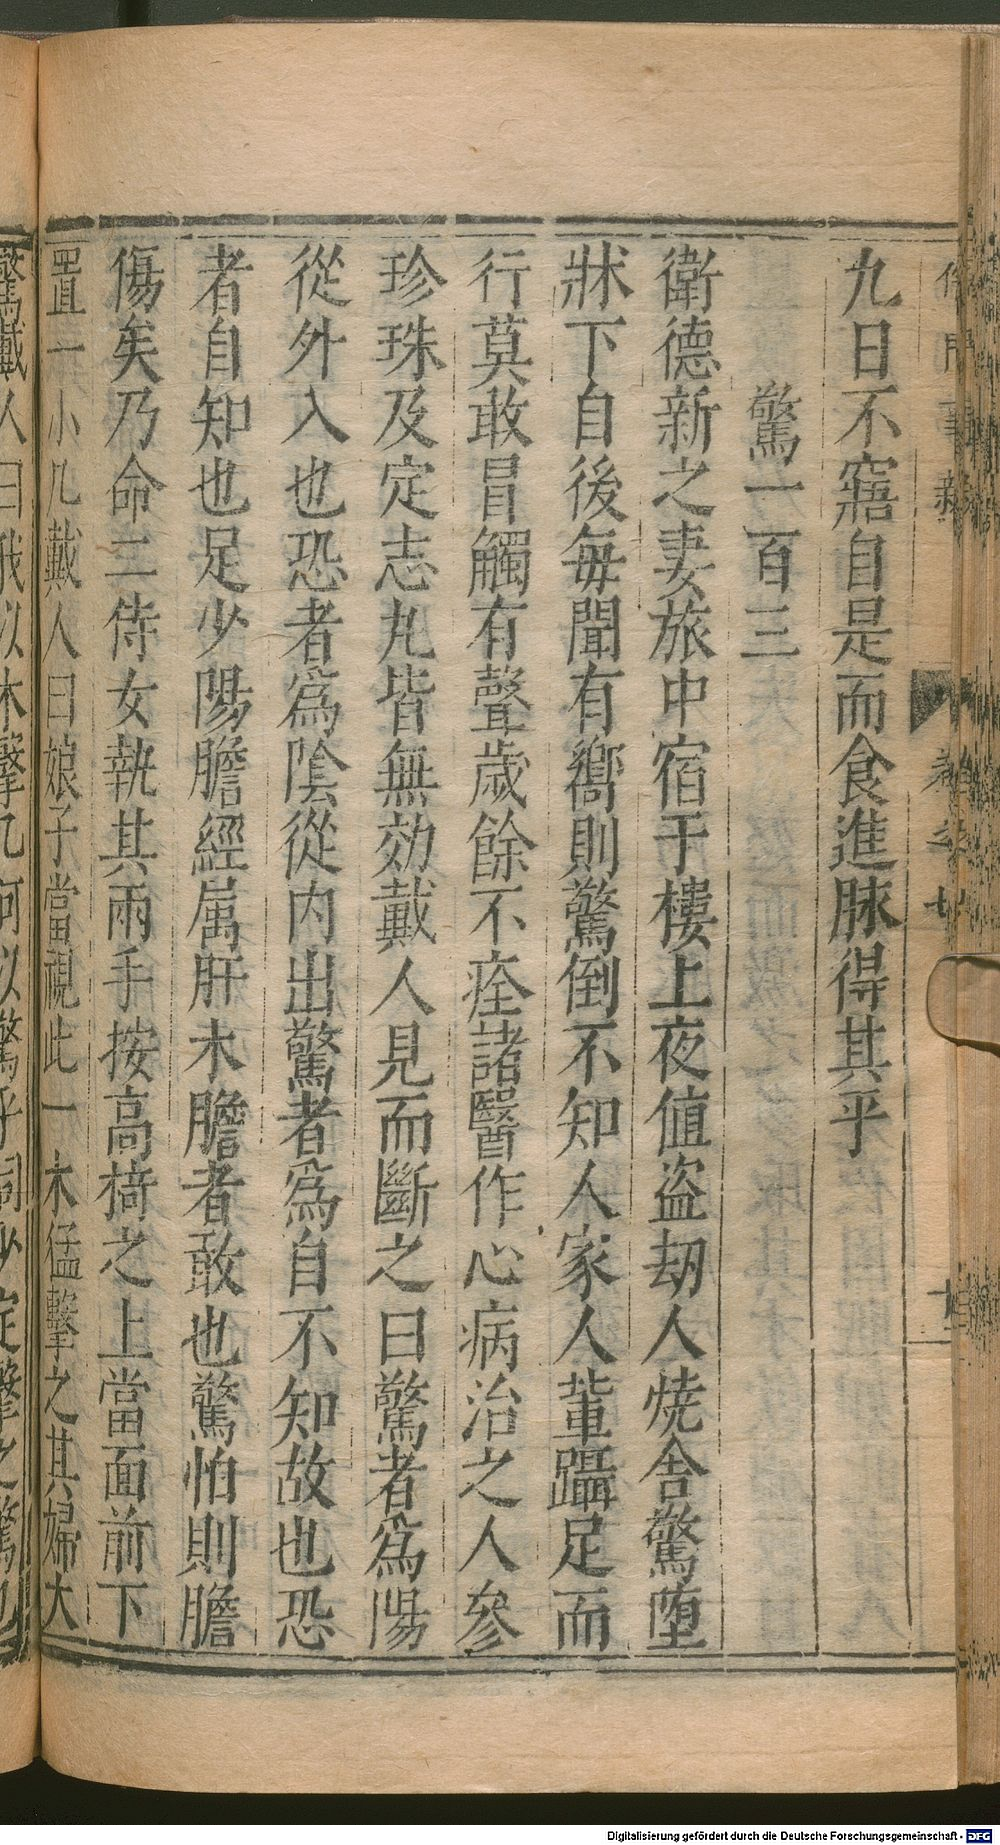 儒門事親
卷之七
十
九日不寤自是而食進脉得其平
驚一百三
衛德新之妻旅中宿于樓上夜值盗劫人燒舍驚堕
牀下自後每聞有嚮則驚倒不知人家人輩躡足而
行莫敢冒觸有聲歲餘不痊諸醫作心病治之人參
珍珠及定志丸皆無効戴人見而斷之曰驚者為陽
從外入也恐者為陰從内出驚者為自不知故也恐
者自知也足少陽膽經属肝木膽者敢也驚怕則膽
傷矣乃命二侍女執其兩手按高椅之上當面前下
置一小几戴人曰娘子當視此一木猛擊之其婦大
驚戴人曰我以木擊几何以驚乎伺少定擊之驚也
Digitalisierung gefördert durch die Deutsche Forschungsgemeinschaft - DFG